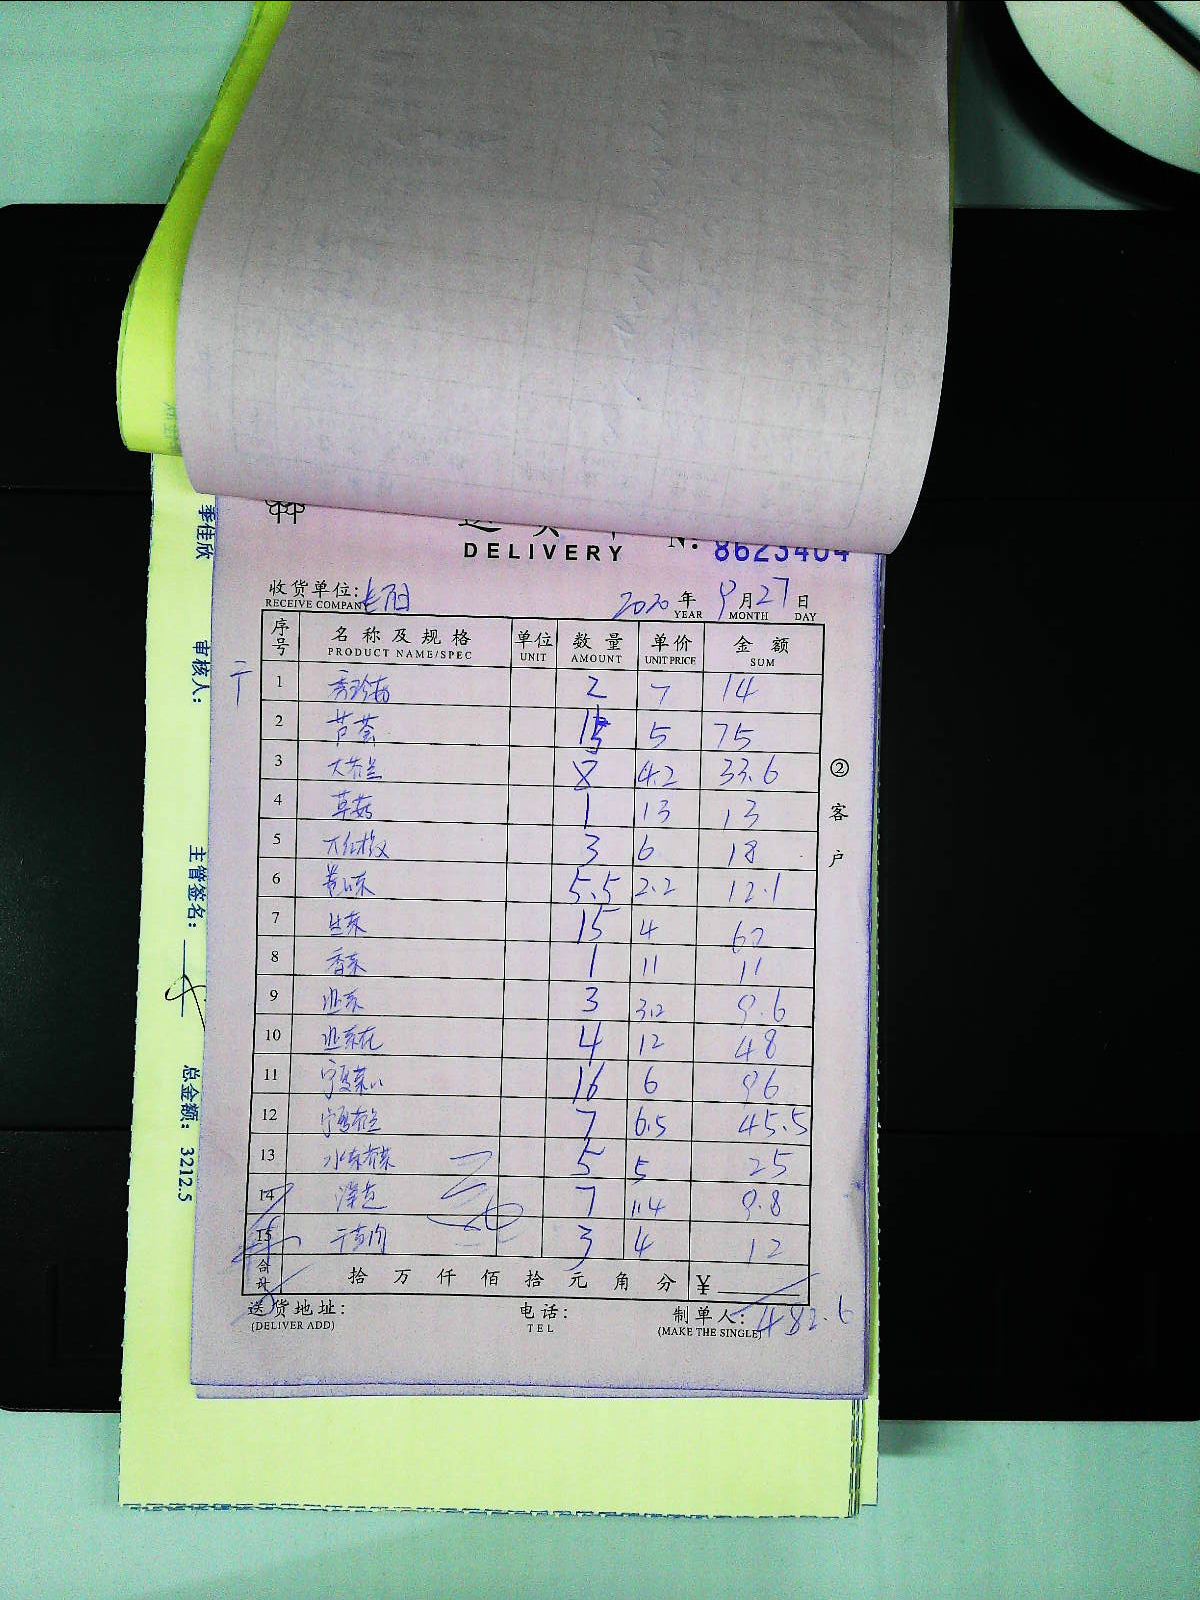 DELIVERY № 8623404
收货单位:
RECEIVE COMPAN
2020 年 9 月 27 日
YEAR MONTH DAY
序号 名称及规格 单位 数量 单价 金额
PRODUCT NAME/SPEC UNIT AMOUNT UNIT PRICE SUM
1 秀珍菇 2 7 14
2 芦荟 15 5 75
3 8 4.2 33.6
4 草菇 1 13 13
5 大红椒 3 6 18
6 5.5 2.2 12.1
7 生菜 15 4 60
8 香菜 1 11 11
9 韭菜 3 3.2 9.6
10 韭菜花 4 12 48
11 宁夏菜心 16 6 96
12 7 6.5 45.5
13 5 5 25
14 7 1.4 9.8
15 3 4 12
合计 拾 万 仟 佰 拾 元 角 分 ¥
482.6
送货地址: 电话: 制单人:
(DELIVER ADD) TEL (MAKE THE SINGLE)
② 客户
季佳欣
审核人:
主管签名:
总金额: 3212.5